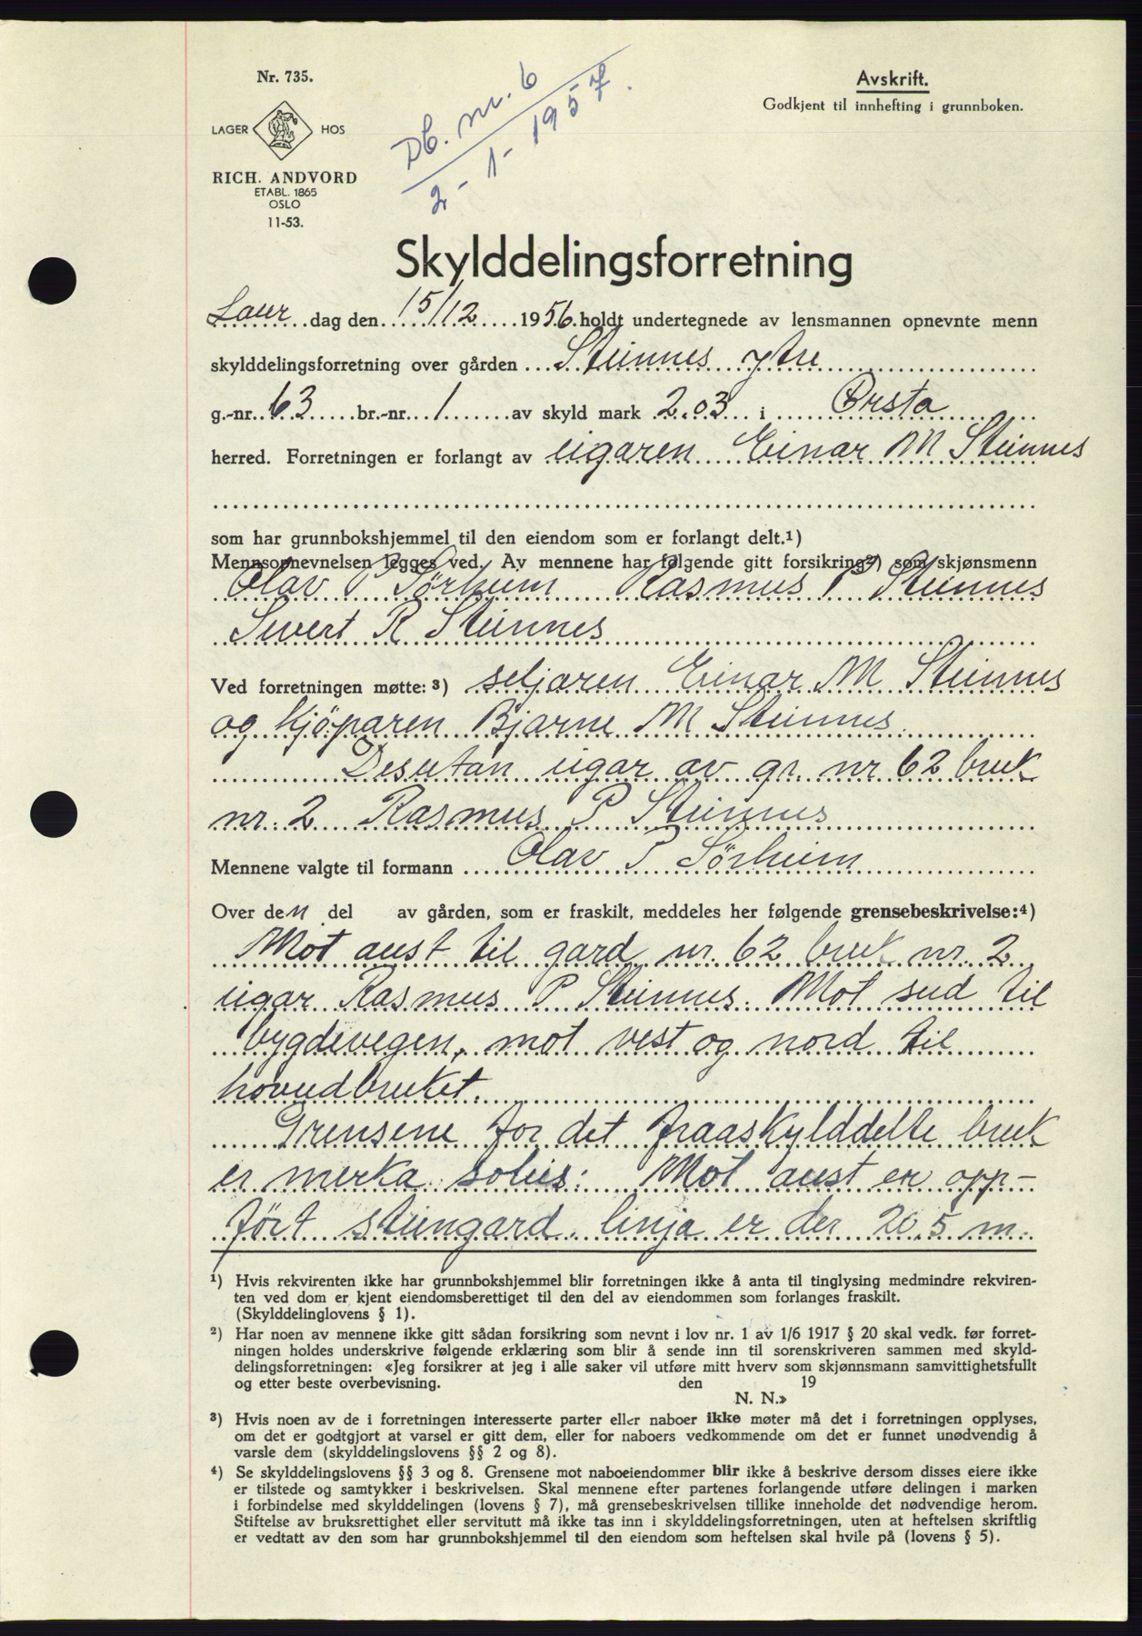 Nr. 735.
LAGER HOS
RICH. ANDVORD
ETABL. 1865
OSLO
11-53.
Db. nr. 6
2 - 1 - 1957.
Avskrift.
Godkjent til innhefting i grunnboken.
Skylddelingsforretning
Laur dag den 15/12 1956 holdt undertegnede av lensmannen opnevnte menn
skylddelingsforretning over gården Steinnes ytre
g.-nr. 63 br.-nr. 1 av skyld mark 2.03 i Ørsta
herred. Forretningen er forlangt av eigaren Einar M Steinnes
som har grunnbokshjemmel til den eiendom som er forlangt delt.¹)
Mennsopnevnelsen legges ved. Av mennene har følgende gitt forsikring²) som skjønsmenn
Olav P Sørheim Rasmus P Steinnes
Sivert R Steinnes
Ved forretningen møtte: ³) seljaren Einar M Steinnes
og kjöparen Bjarne M Steinnes.
Desutan eigar av gr. nr 62 bruk
nr. 2 Rasmus P Steinnes
Mennene valgte til formann Olav P Sørheim
Over den del av gården, som er fraskilt, meddeles her følgende grensebeskrivelse:⁴)
Mot aust til gard nr. 62 bruk nr. 2
eigar Rasmus P Steinnes. Mot sud til
bygdevegen, mot vest og nord til
hovudbruket.
Grensene for det fraaskylddelte bruk
er merka soleis: Mot aust er opp-
ført steingard, linja er der 20.5 m.
¹) Hvis rekvirenten ikke har grunnbokshjemmel blir forretningen ikke å anta til tinglysing medmindre rekviren-
ten ved dom er kjent eiendomsberettiget til den del av eiendommen som forlanges fraskilt.
(Skylddelinglovens § 1).
²) Har noen av mennene ikke gitt sådan forsikring som nevnt i lov nr. 1 av 1/6 1917 § 20 skal vedk. før forret-
ningen holdes underskrive følgende erklæring som blir å sende inn til sorenskriveren sammen med skyld-
delingsforretningen: «Jeg forsikrer at jeg i alle saker vil utføre mitt hverv som skjønnsmann samvittighetsfullt
og etter beste overbevisning. den 19
N. N.»
³) Hvis noen av de i forretningen interesserte parter eller naboer ikke møter må det i forretningen opplyses,
om det er godtgjort at varsel er gitt dem, eller for naboers vedkommende om det er funnet unødvendig å
varsle dem (skylddelingslovens §§ 2 og 8).
⁴) Se skylddelingslovens §§ 3 og 8. Grensene mot naboeiendommer blir ikke å beskrive dersom disses eiere ikke
er tilstede og samtykker i beskrivelsen. Skal mennene efter partenes forlangende utføre delingen i marken
i forbindelse med skylddelingen (lovens § 7), må grensebeskrivelsen tillike inneholde det nødvendige herom.
Stiftelse av bruksrettighet eller servitutt må ikke tas inn i skylddelingsforretningen, uten at heftelsen skriftlig
er vedtatt av den som har grunnbokshjemmel til den eiendom som heftelsen skal hvile på (lovens § 5).